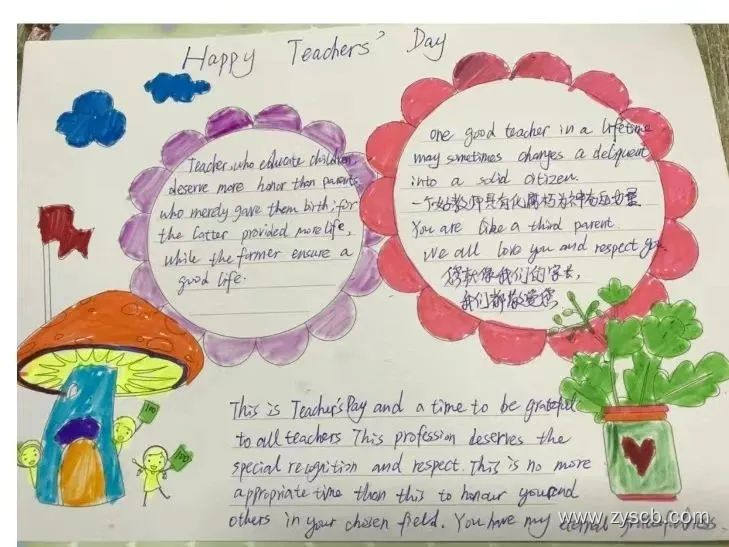 Happy Teachers' Day
Teacher, who educate children
deserve more honor than parents
who merely gave them birth; for
the Latter provided more life,
while the former ensure a
good life.
One good teacher in a lifetime
may sometimes changes a deliquent
into a solid citizen.
一个好教师具有化腐朽为神奇的力量
You are like a third parent.
We all love you and respect you
您就像我们的家长,
我们都敬爱您
This is Teacher's Day and a time to be grateful
to all teachers This profession deserves the
special recognition and respect. This is no more
appropriate time than this to honour you and
others in your chosen field. You have my eternal
100
100
www.zyscb.com